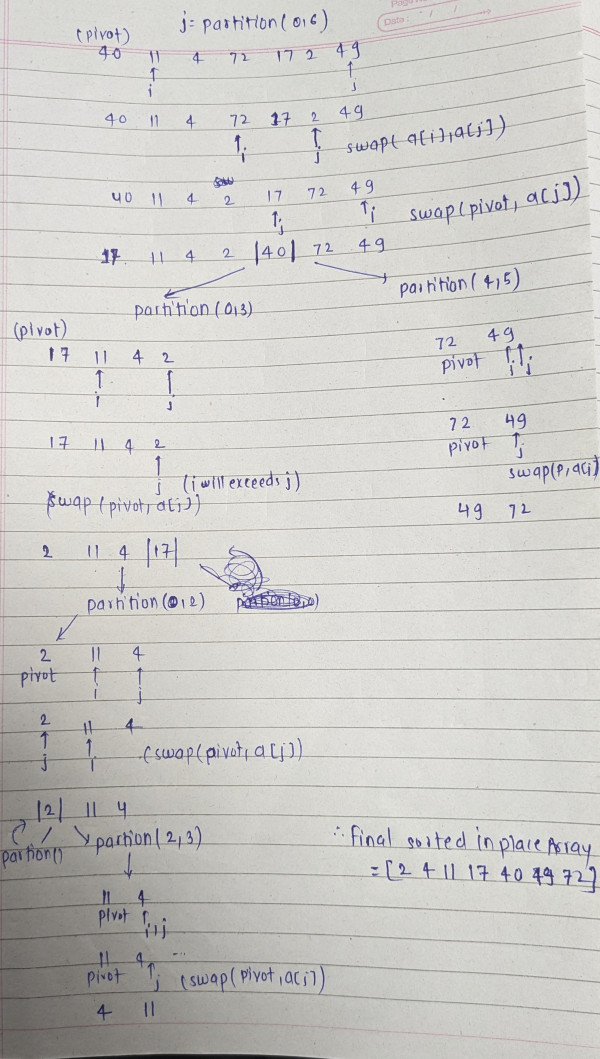 Date :
j = partition(0,6)
(pivot)
40 11 4 72 17 2 49
i j
40 11 4 72 17 2 49
i j swap(a[i],a[j])
40 11 4 2 17 72 49
j i swap(pivot, a[j])
17 11 4 2 |40| 72 49
partition(0,3)
partition(4,5)
(pivot)
17 11 4 2
i j
17 11 4 2
j (i will exceeds j)
swap(pivot, a[j])
2 11 4 |17|
partition(0,2)
2 11 4
pivot i j
2 11 4
j i (swap(pivot, a[j])
|2| 11 4
partion() partion(2,3)
11 4
pivot i,j
11 4 ...
pivot j (swap(pivot, a[j])
4 11
72 49
pivot i j
72 49
pivot j
swap(P, a[i]
49 72
∴ final sorted inplace Array
= [2 4 11 17 40 49 72]